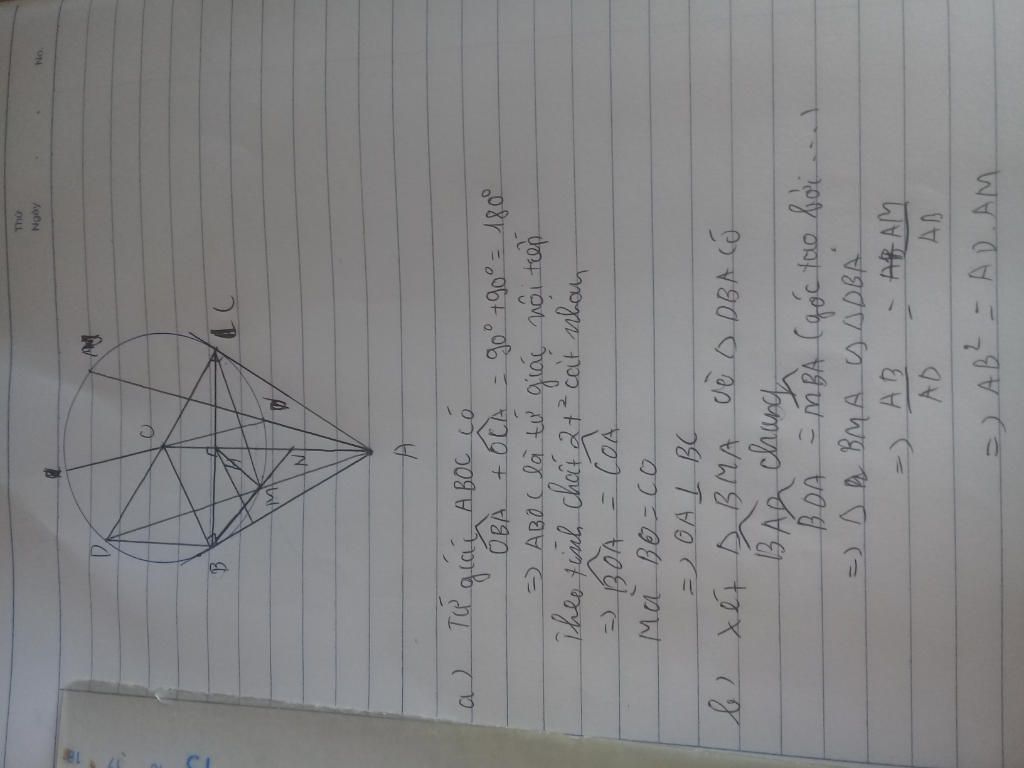 Thứ
Ngày
No.
D
O
C
B
M
N
A
a) Tứ giác ABOC có
OBA + OCA = 90° + 90° = 180°
=) ABOC là tứ giác nội tiếp
Theo tính chất 2 t² cắt nhau
=) BOA = COA
Mà BO = CO
=) OA ⊥ BC
b) Xét △ BMA và △ DBA có
BAD chung
BDA = MBA (góc tạo bởi ....)
=) △ BMA ∽ △ DBA
=) AB/AD = AM/AB
=) AB² = AD. AM